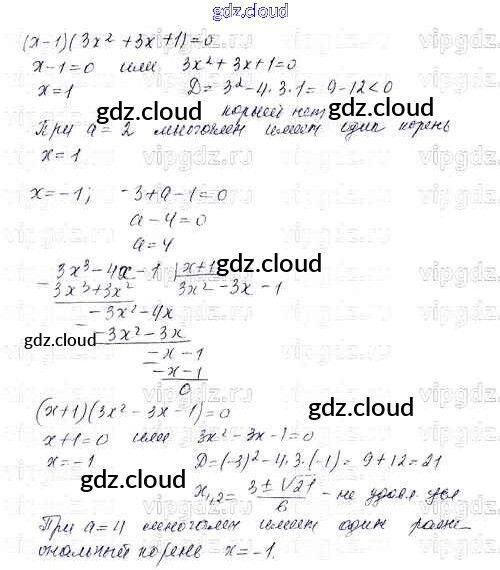 gdz.cloud
(x-1)(3x² +3x+1)=0
x-1=0 или 3x²+3x+1=0
x=1 D=3²-4·3·1=9-12<0
корней нет
gdz.cloud
При a=2 многочлен имеет один корень
x=1
x=-1; -3+a-1=0
a-4=0
a=4
3x³-4x-1 |x+1
gdz.cloud
3x³+3x² 3x²-3x-1
-3x²-4x
gdz.cloud
-3x²-3x
-x-1
-x-1
0
gdz.cloud
(x+1)(3x²-3x-1)=0
x+1=0 или 3x²-3x-1=0
x=-1 D=(-3)²-4·3·(-1)=9+12=21
gdz.cloud
x₁,₂= 3±√21 / 6 - не
При a=4 многочлен имеет один раци-
ональный корень x=-1.